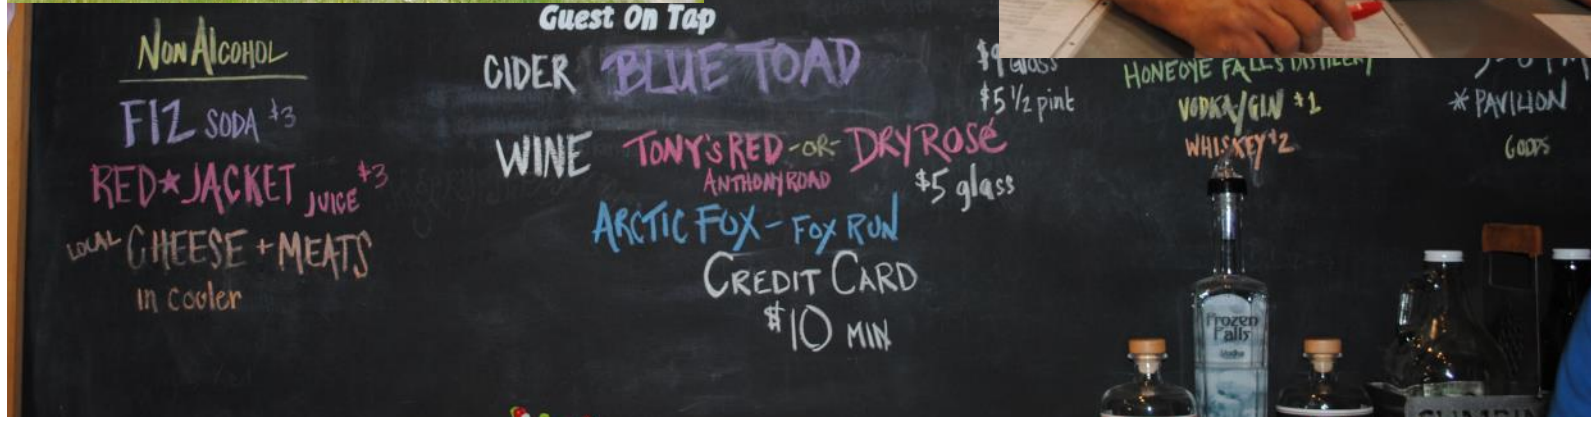 Guest On Tap
NON ALCOHOL
FIZ SODA $3
RED★JACKET JUICE $3
LOCAL CHEESE + MEATS
in cooler
CIDER BLUE TOAD
$9 Glass
$5 1/2 pint
WINE TONY'S RED -OR- DRY ROSÉ
ANTHONY ROAD
$5 glass
ARCTIC FOX - FOX RUN
CREDIT CARD
$10 MIN
HONEOYE FALLS DISTILLERY
VODKA/GIN $1
WHISKEY $2
* PAVILION
GOODS
Frozen
Falls
Vodka